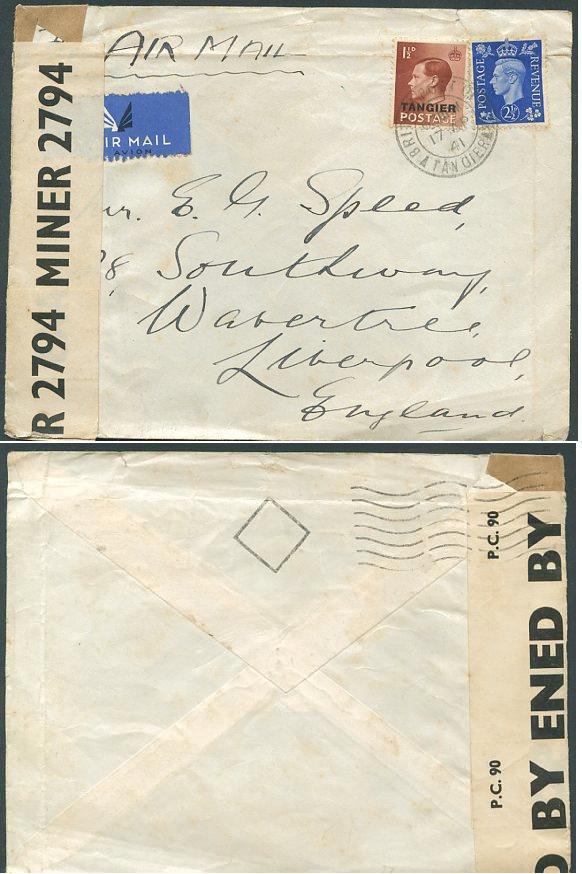 AIR MAIL
1½D
TANGIER
POSTAGE
POSTAGE
REVENUE
2½D
17
41
TANGIER
IR MAIL
AVION
R 2794 MINER 2794
Mr. E. G. Speed,
8, Southway,
Wavertree,
Liverpool,
England.
P.C. 90
P.C. 90
D BY ENED BY